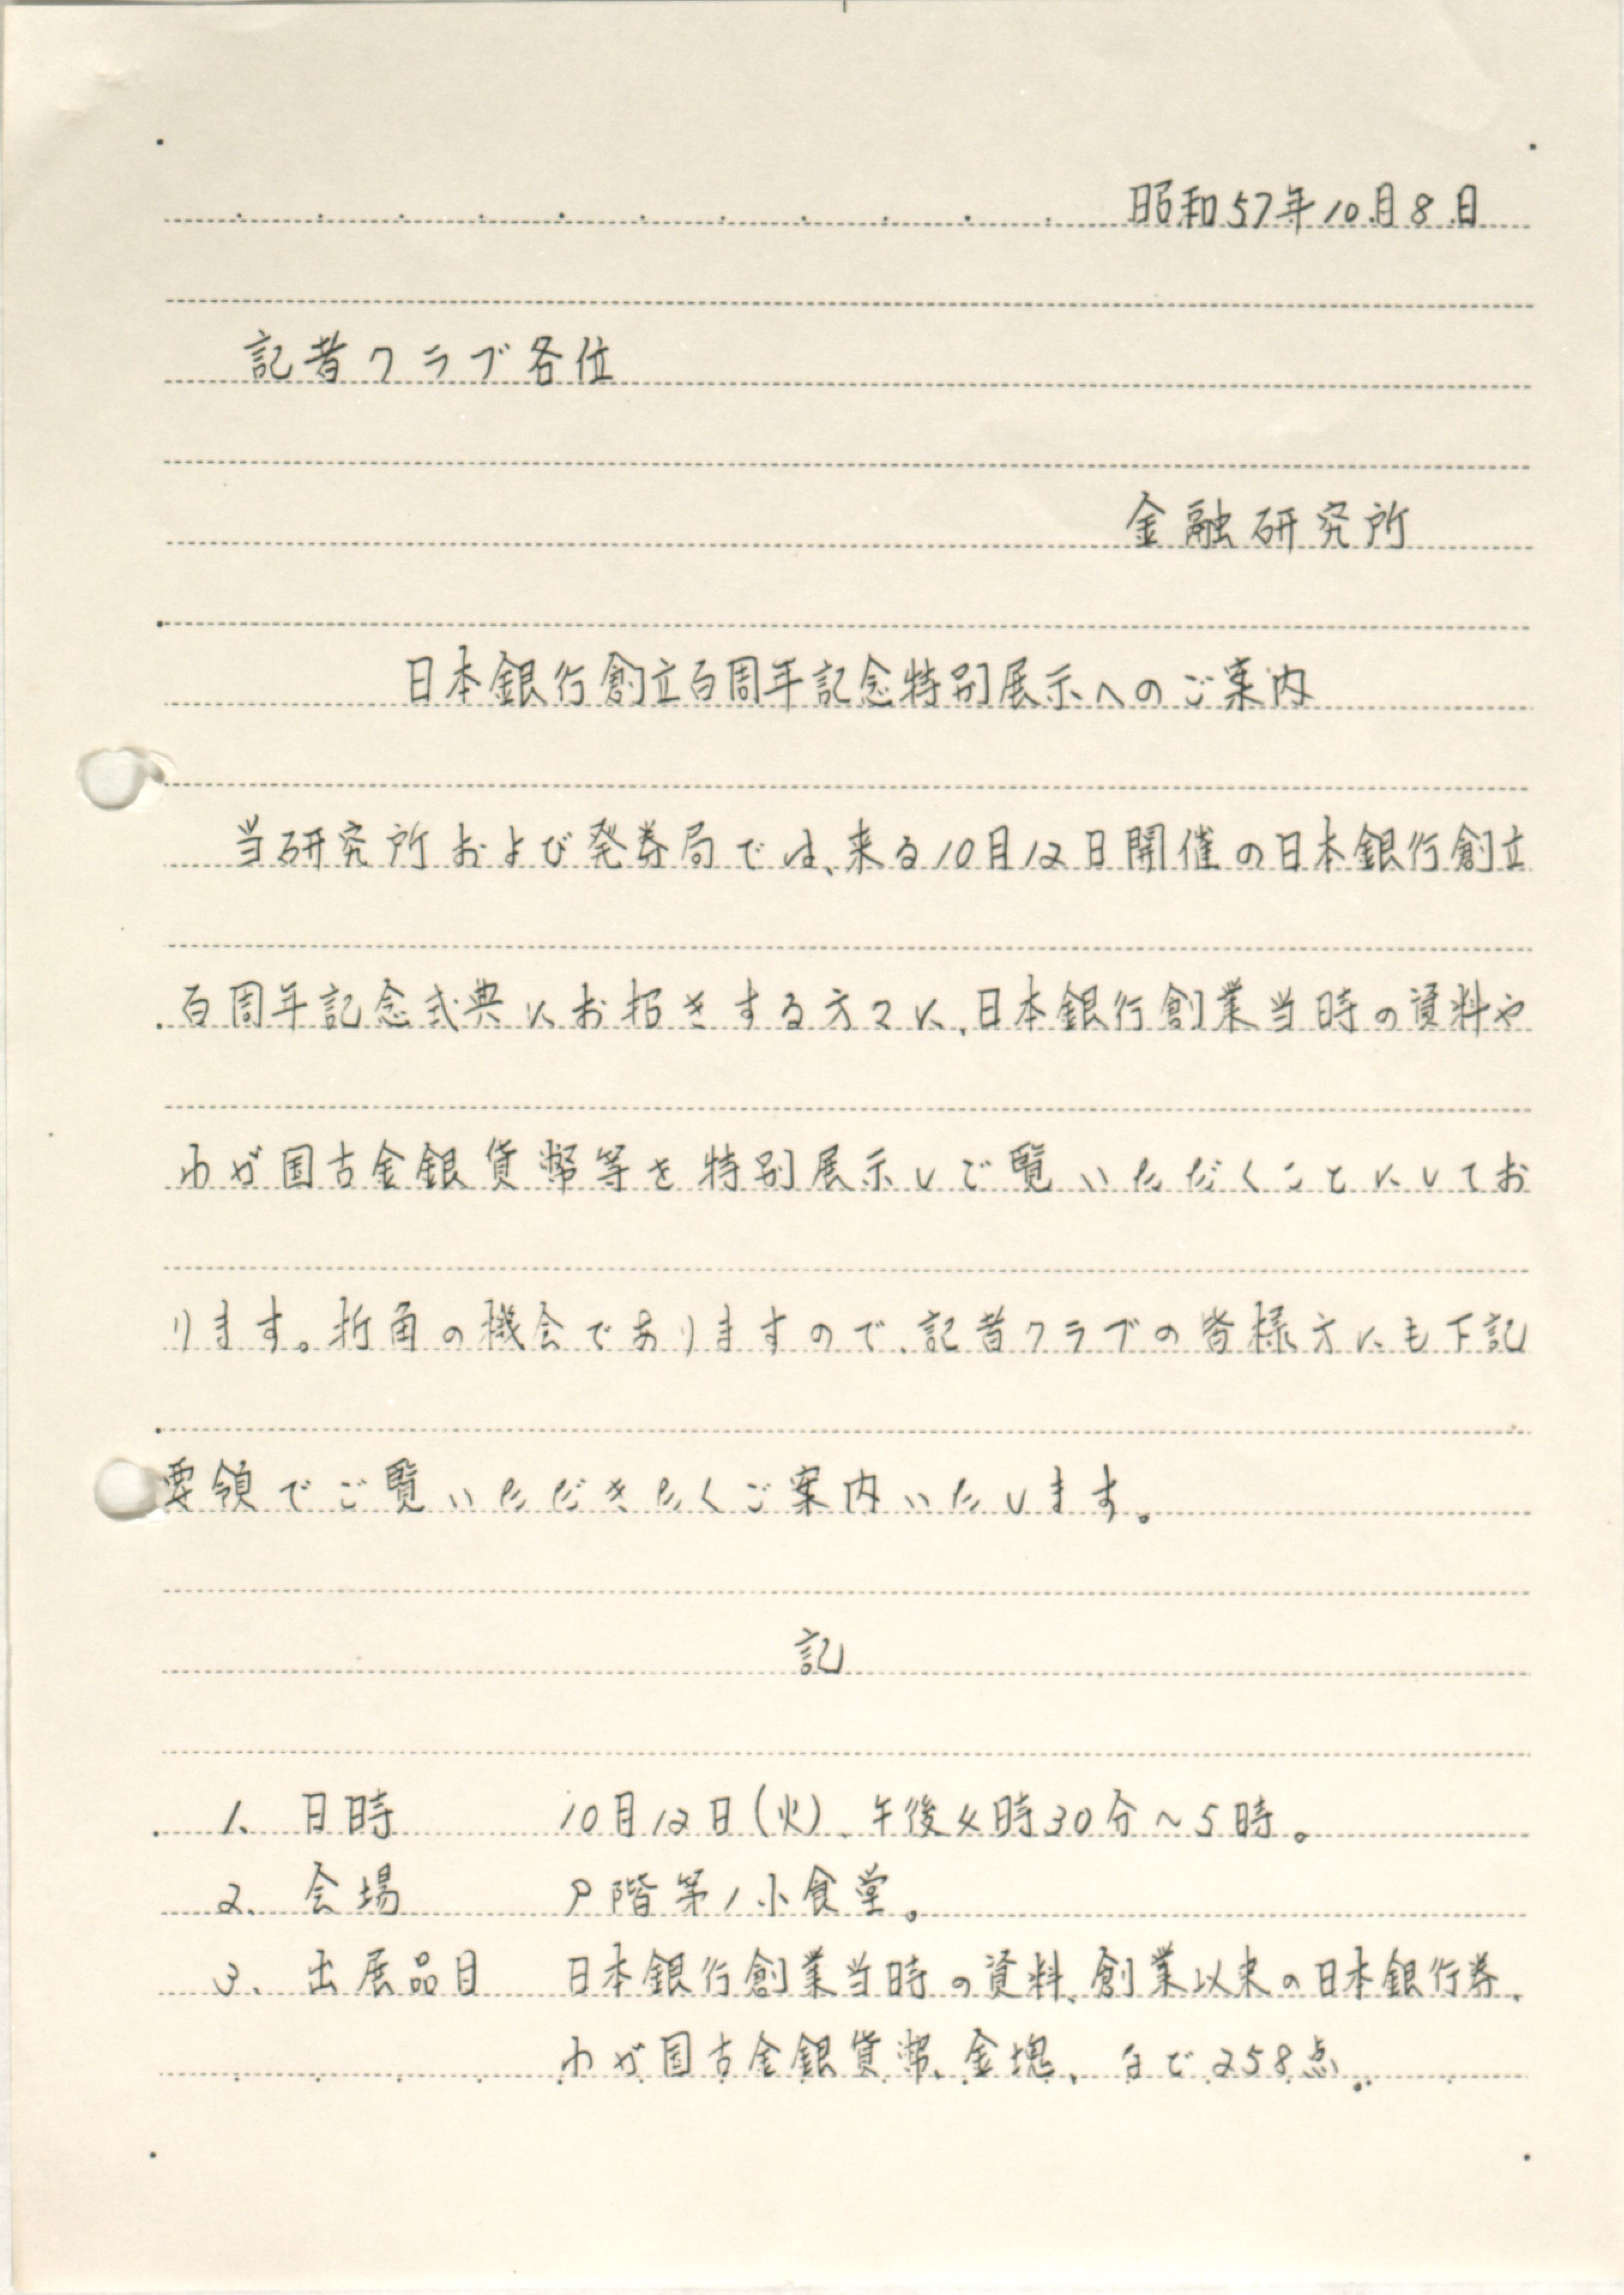 昭和57年10月8日
記者クラブ各位
金融研究所
日本銀行創立百周年記念特別展示へのご案内
当研究所および発券局では、来る10月12日開催の日本銀行創立
百周年記念式典にお招きする方々に、日本銀行創業当時の資料や
わが国古金銀貨幣等を特別展示しご覧いただくことにしてお
ります。折角の機会でありますので、記者クラブの皆様方にも下記
要領でご覧いただきたくご案内いたします。
記
1. 日時 10月12日(火)、午後4時30分〜5時。
2. 会場 階第1小食堂。
3. 出展品目 日本銀行創業当時の資料、創業以来の日本銀行券、
わが国古金銀貨幣、金塊、など258点。